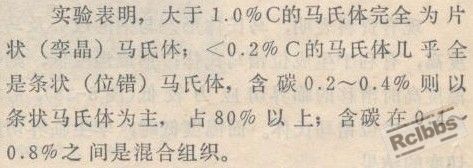 实验表明，大于1.0%C的马氏体完全为片
状（孪晶）马氏体；＜0.2%C的马氏体几乎全
是条状（位错）马氏体，含碳0.2～0.4%则以
条状马氏体为主，占80%以上；含碳在
0.8%之间是混合组织。
Rclbbs